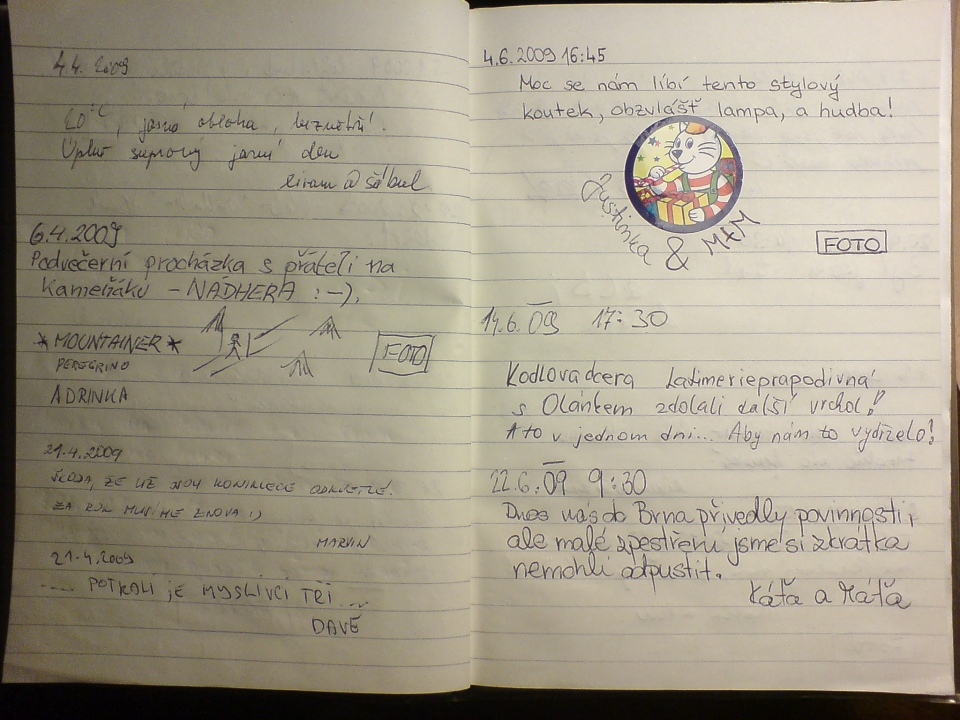 4.4. 2009
20°C, jasná obloha, bezvětří.
Úplně suprový jarní den
a
6.4.2009
Podvečerní procházka s přáteli na
Kameňáku - NÁDHERA :-).
* MOUNTAINER *
PEREGRINO
ADRINKA
FOTO
21.4.2009
ŠKODA, ŽE UŽ JSOU KONIKLECE ODKVETLÉ.
ZA ROK MUSÍME ZNOVA :)
MARVIN
21.4.2009
.... POTKALI JE MYSLIVCI TŘI ....
DAVE
4.6.2009 16:45
Moc se nám líbí tento stylový
koutek, obzvlášť lampa, a hudba!
Justinka & M+M
FOTO
14.6.09 17:30
Kodlovadcera
s Olánkem zdolali další vrchol!
A to v jednom dni... Aby nám to vydrželo!
22.6.09 9:30
Dnes nás do Brna přivedly povinnosti,
ale malé zpestření jsme si zkrátka
nemohli odpustit.
Káťa a Máťa